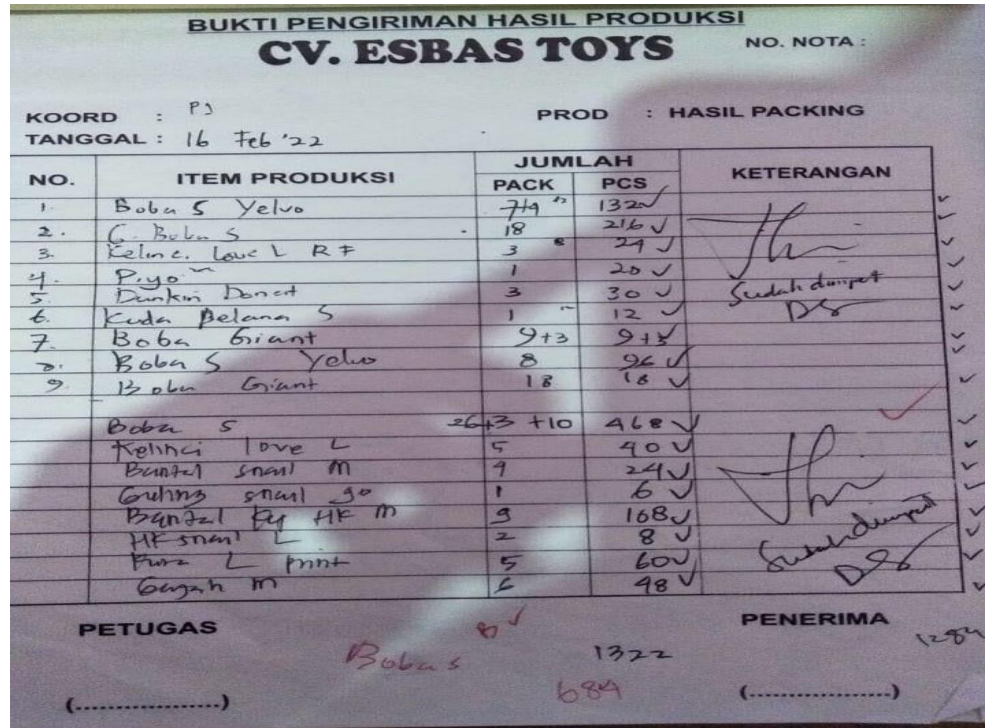 BUKTI PENGIRIMAN HASIL PRODUKSI
CV. ESBAS TOYS
NO. NOTA :
KOORD : PJ
PROD : HASIL PACKING
TANGGAL : 16 Feb '22
NO. ITEM PRODUKSI JUMLAH KETERANGAN
PACK PCS
1. Boba S Yelvo 132
2. G. Boba S 18 216
3. Kelinc. Love L RF 3 24
4. Piyo 1 20
5. Dunkin Donat 3 30
Sudah dumpet
6. Kuda Belana S 1 12
DS
7. Boba Giant 9+3 9+3
8. Boba S Yelvo 8 96
9. Boba Giant 18 18
Boba S 26+3 +10 468
Kelinci love L 5 40
Bantal snail M 4 24
Guling snail 90 1 6
Bantal HK M 168
HK snail L 2 8
L print 5 60
Sudah dumpet
Gajah M 6 48
DS
PETUGAS
PENERIMA
Boba S 1322 1284
684
(..................) (..................)